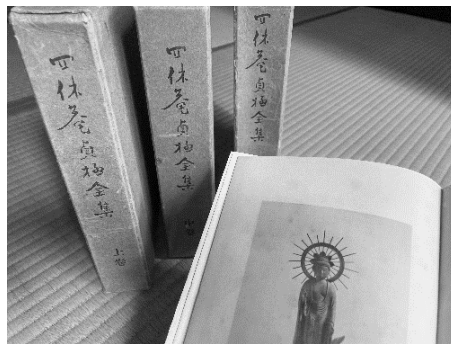 四休菴貞極全集
上巻
四休菴貞極全集
中巻
四休菴貞極全集